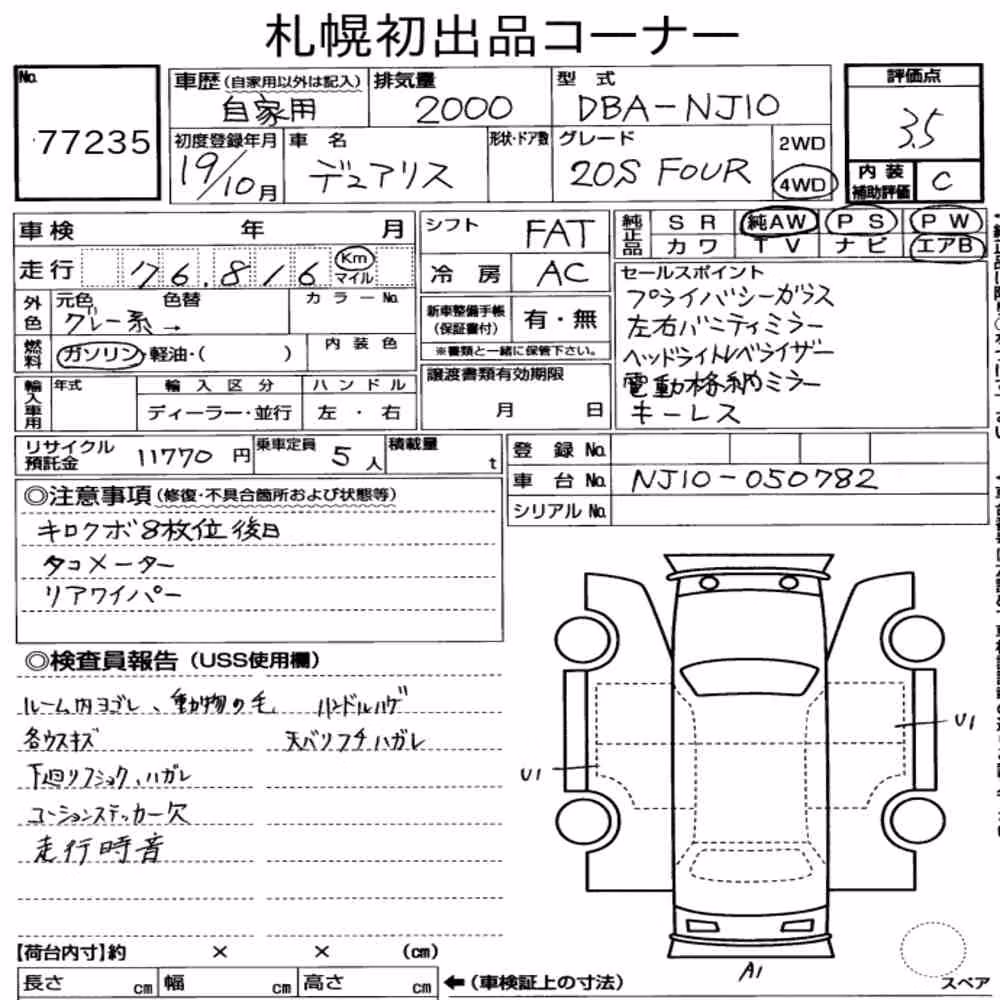 札幌初出品コーナー
No. 77235
車歴(自家用以外は記入) 自家用
排気量 2000
型式 DBA-NJ10
評価点 3.5
初度登録年月 19/10月
車名 デュアリス
形状・ドア数
グレード 20S FOUR
2WD
4WD
内装補助評価 C
車検 年 月
走行 76,816 Km マイル
シフト FAT
冷房 AC
純正品 SR 純AW PS PW
カワ TV ナビ エアB
外色 元色 グレー系→ 色替 カラーNo.
燃料 ガソリン・軽油・( ) 内装色
新車整備手帳(保証書付) 有・無
※書類と一緒に保管下さい。
セールスポイント
プライバシーガラス
左右バニティミラー
ヘッドライトレベライザー
電動格納ミラー
キーレス
輸入車用 年式 輸入区分 ハンドル
ディーラー・並行 左・右
譲渡書類有効期限
月 日
リサイクル預託金 11770円
乗車定員 5人
積載量 t
登録No.
車台No. NJ10-050782
シリアルNo.
◎注意事項(修復・不具合箇所および状態等)
キロクボ8枚位後日
タコメーター
リアワイパー
◎検査員報告(USS使用欄)
ルーム内ヨゴレ、動物の毛 ハンドルハゲ
各ウスキズ 天バリフチハガレ
下廻りフショク、ハガレ
コーションステッカー欠
走行時音
U1
U1
A1
【荷台内寸】約 × × (cm)
長さ cm 幅 cm 高さ cm ←(車検証上の寸法)
スペア